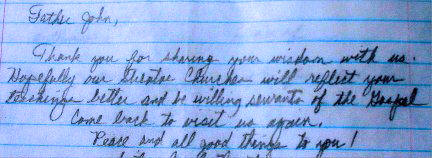 Father John,
Thank you for sharing your wisdom with us.
Hopefully our Churches will reflect your
teachings better and be willing servants of the Gospel
Come back to visit us again.
Peace and all good things to you!